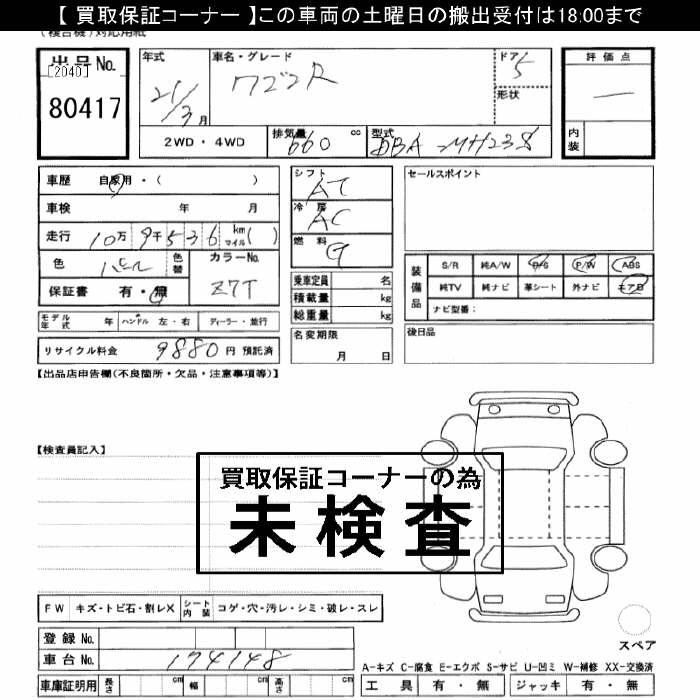 【 買取保証コーナー 】この車両の土曜日の搬出受付は18:00まで
出品No.
[2040]
80417
年式
21/3月
車名・グレード
ワゴンR
ドア
5
形状
評価点
―
内装
2WD・4WD
排気量 660 cc
型式 DBA-MH23S
車歴 自家用・( )
車検 年 月
走行 10万 9千 5 3 6 km マイル ( )
色 パール 色替
カラーNo. Z7T
保証書 有・無
モデル年式 年 ハンドル 左・右 ディーラー・並行
リサイクル料金 9880 円 預託済
シフト AT
冷房 AC
燃料 G
乗車定員 名
積載量 kg
総重量 kg
名変期限
月 日
セールスポイント
装備品
S/R 純A/W P/S P/W ABS
純TV 純ナビ 革シート 外ナビ エアB
ナビ型番：
後日品
【出品店申告欄(不良箇所・欠品・注意事項等)】
【検査員記入】
買取保証コーナーの為
未検査
FW キズ・トビ石・割レX シート内装 コゲ・穴・汚レ・シミ・破レ・スレ
登録 No.
車台 No. 174148
車庫証明用 長さ cm 幅 cm 高さ cm
スペア
A-キズ C-腐食 E-エクボ S-サビ U-凹ミ W-補修 XX-交換済
工具 有・無 ジャッキ 有・無